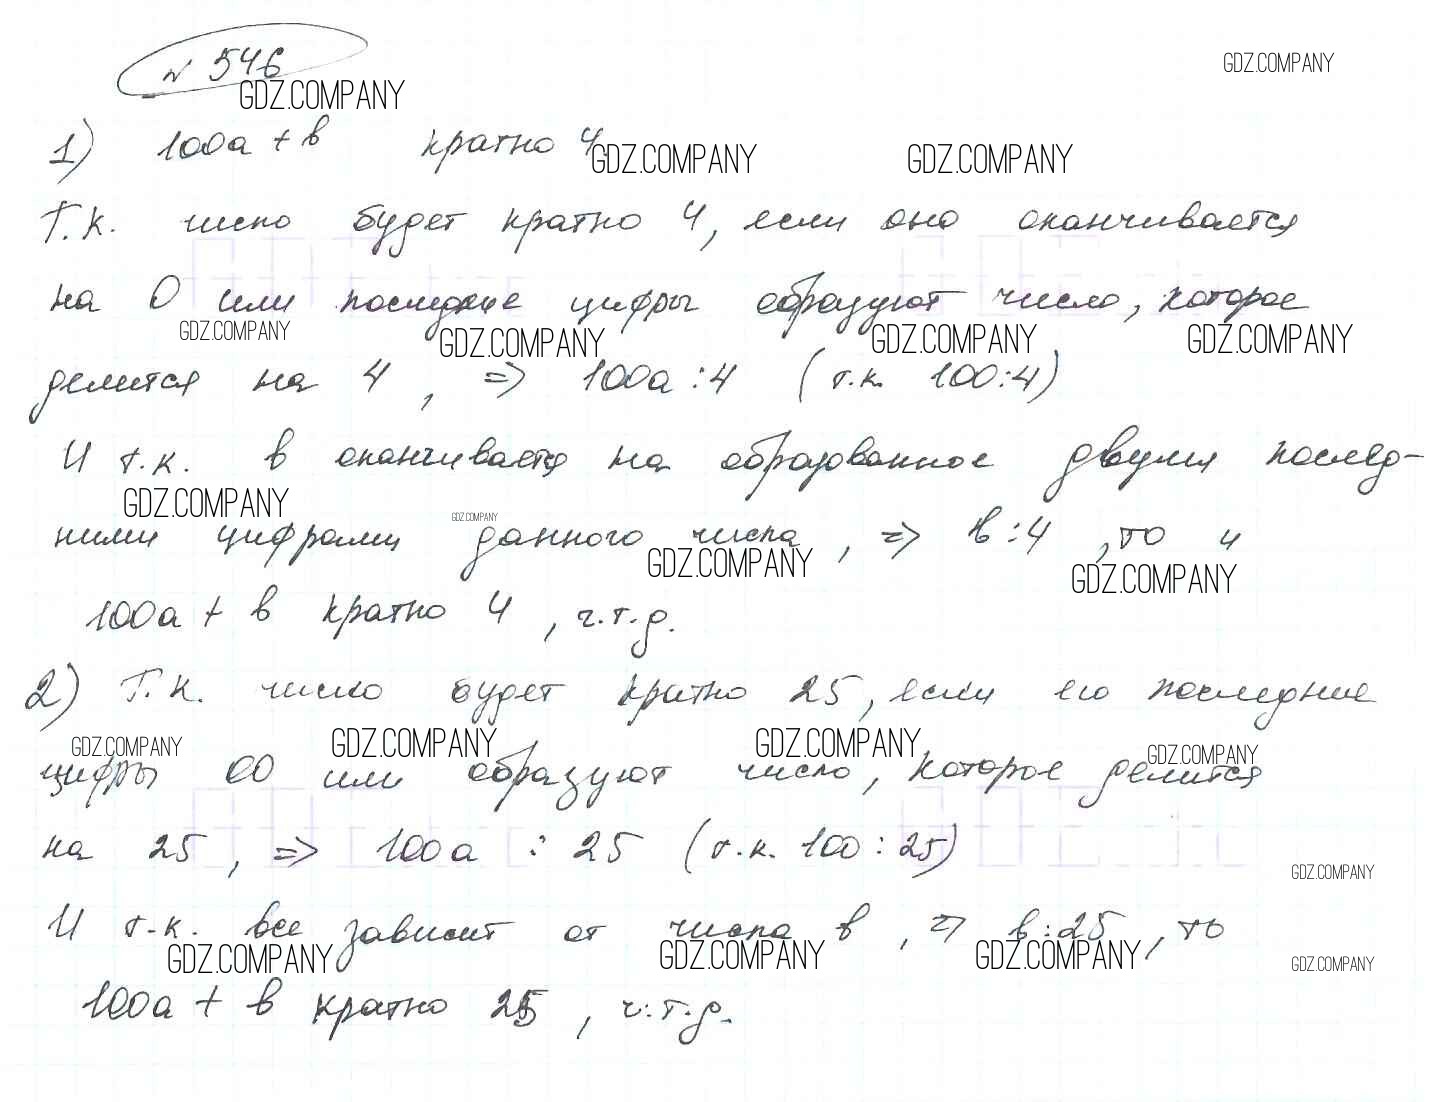 № 546
GDZ.COMPANY
GDZ.COMPANY
1) 100a + в кратно 4.
GDZ.COMPANY GDZ.COMPANY
Т.к. число будет кратно 4, если оно оканчивается
на 0 или последние цифры образуют число, которое
GDZ.COMPANY GDZ.COMPANY GDZ.COMPANY GDZ.COMPANY
делится на 4, => 100a : 4 (т.к. 100:4)
И т.к. в оканчивается на образованное двумя послед-
GDZ.COMPANY GDZ.COMPANY
ними цифрами данного числа, => в : 4, то и
GDZ.COMPANY GDZ.COMPANY
100a + в кратно 4, ч.т.д.
2) Т.к. число будет кратно 25, если его последние
GDZ.COMPANY GDZ.COMPANY GDZ.COMPANY GDZ.COMPANY
цифры 00 или образуют число, которое делится
на 25, => 100a : 25 (т.к. 100 : 25)
GDZ.COMPANY
И т.к. все зависит от числа в, => в : 25, то
GDZ.COMPANY GDZ.COMPANY GDZ.COMPANY GDZ.COMPANY
100a + в кратно 25, ч.т.д.